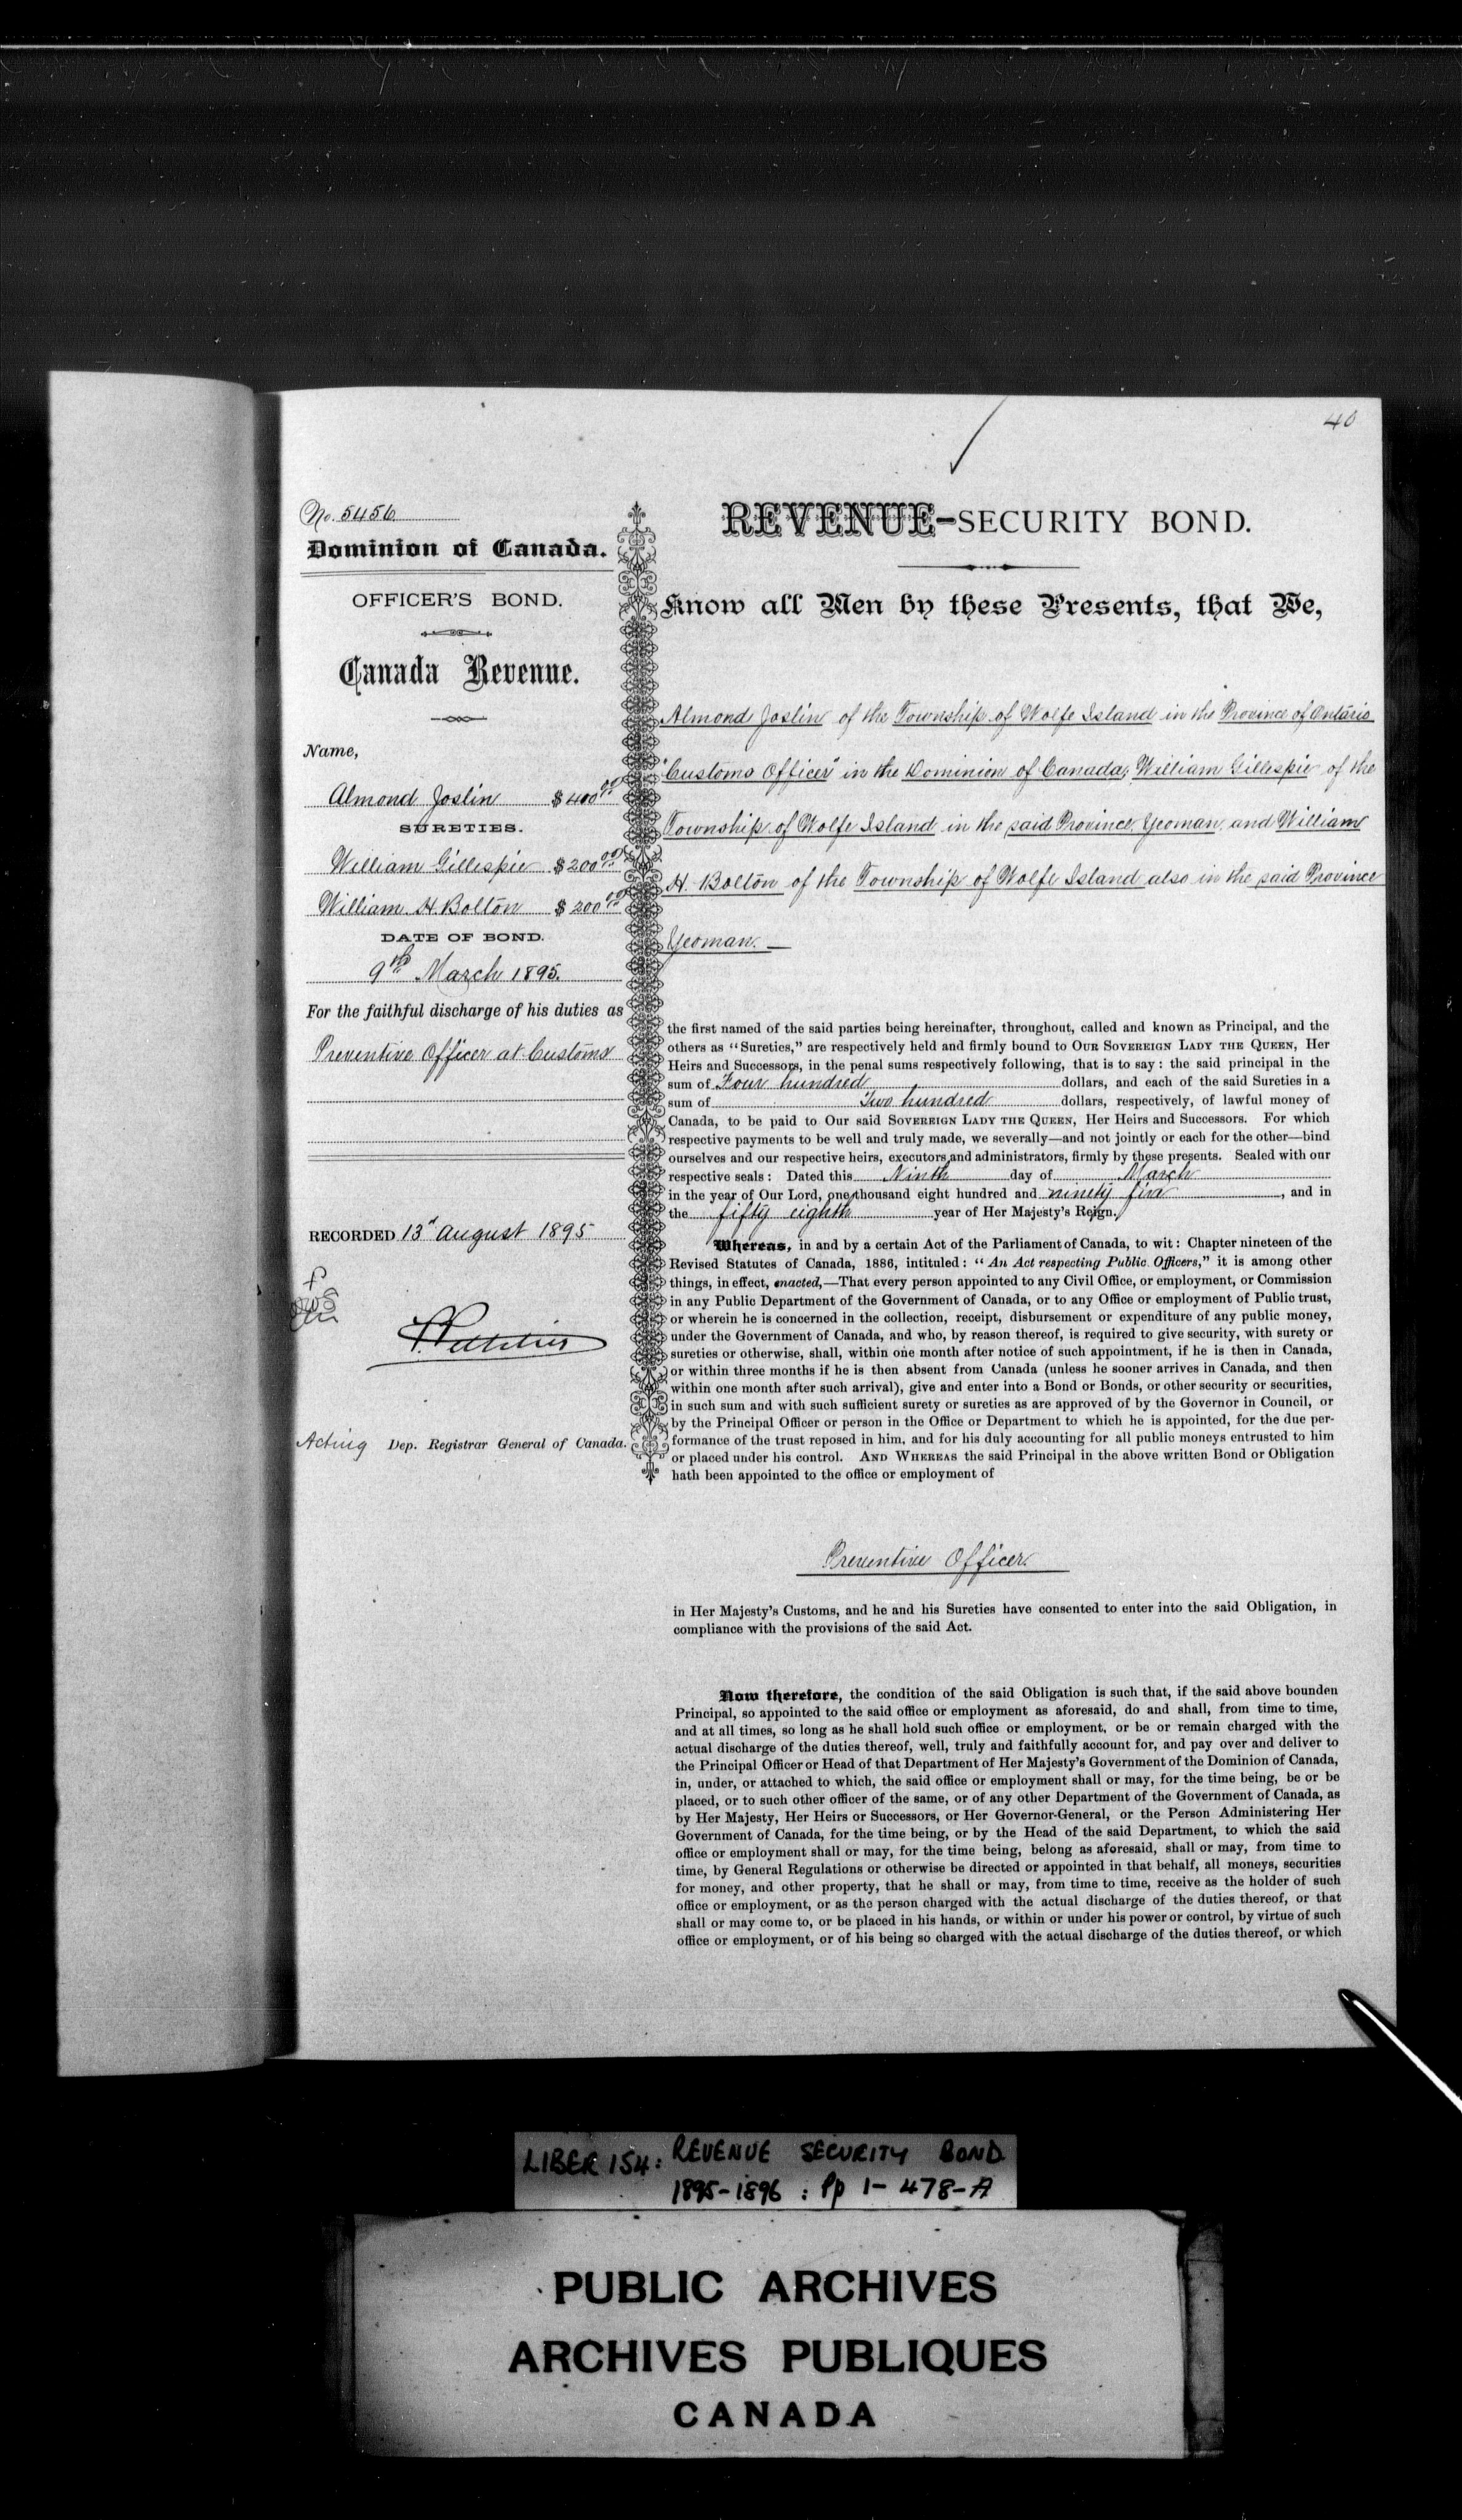 40
No. 5456
Dominion of Canada.
OFFICER'S BOND.
Canada Revenue.
Name,
Almond Joslin $ 400 00
SURETIES.
William Gillespie $ 200 00
William H. Bolton $ 200 00
DATE OF BOND.
9th March 1895.
For the faithful discharge of his duties as
Preventive Officer at Customs
RECORDED 13th August 1895
Acting Dep. Registrar General of Canada.
REVENUE-SECURITY BOND.
Know all Men by these Presents, that We,
Almond Joslin of the Township of Wolfe Island in the Province of Ontario
"Customs Officer" in the Dominion of Canada; William Gillespie of the
Township of Wolfe Island in the said Province, Yeoman, and William
H. Bolton of the Township of Wolfe Island also in the said Province
Yeoman. —
the first named of the said parties being hereinafter, throughout, called and known as Principal, and the
others as "Sureties," are respectively held and firmly bound to OUR SOVEREIGN LADY THE QUEEN, Her
Heirs and Successors, in the penal sums respectively following, that is to say: the said principal in the
sum of Four hundred dollars, and each of the said Sureties in a
sum of Two hundred dollars, respectively, of lawful money of
Canada, to be paid to Our said SOVEREIGN LADY THE QUEEN, Her Heirs and Successors. For which
respective payments to be well and truly made, we severally—and not jointly or each for the other—bind
ourselves and our respective heirs, executors and administrators, firmly by these presents. Sealed with our
respective seals: Dated this Ninth day of March
in the year of Our Lord, one thousand eight hundred and ninety five, and in
the fifty eighth year of Her Majesty's Reign.
Whereas, in and by a certain Act of the Parliament of Canada, to wit: Chapter nineteen of the
Revised Statutes of Canada, 1886, intituled: "An Act respecting Public Officers," it is among other
things, in effect, enacted,—That every person appointed to any Civil Office, or employment, or Commission
in any Public Department of the Government of Canada, or to any Office or employment of Public trust,
or wherein he is concerned in the collection, receipt, disbursement or expenditure of any public money,
under the Government of Canada, and who, by reason thereof, is required to give security, with surety or
sureties or otherwise, shall, within one month after notice of such appointment, if he is then in Canada,
or within three months if he is then absent from Canada (unless he sooner arrives in Canada, and then
within one month after such arrival), give and enter into a Bond or Bonds, or other security or securities,
in such sum and with such sufficient surety or sureties as are approved of by the Governor in Council, or
by the Principal Officer or person in the Office or Department to which he is appointed, for the due per-
formance of the trust reposed in him, and for his duly accounting for all public moneys entrusted to him
or placed under his control. AND WHEREAS the said Principal in the above written Bond or Obligation
hath been appointed to the office or employment of
Preventive Officer
in Her Majesty's Customs, and he and his Sureties have consented to enter into the said Obligation, in
compliance with the provisions of the said Act.
Now therefore, the condition of the said Obligation is such that, if the said above bounden
Principal, so appointed to the said office or employment as aforesaid, do and shall, from time to time,
and at all times, so long as he shall hold such office or employment, or be or remain charged with the
actual discharge of the duties thereof, well, truly and faithfully account for, and pay over and deliver to
the Principal Officer or Head of that Department of Her Majesty's Government of the Dominion of Canada,
in, under, or attached to which, the said office or employment shall or may, for the time being, be or be
placed, or to such other officer of the same, or of any other Department of the Government of Canada, as
by Her Majesty, Her Heirs or Successors, or Her Governor-General, or the Person Administering Her
Government of Canada, for the time being, or by the Head of the said Department, to which the said
office or employment shall or may, for the time being, belong as aforesaid, shall or may, from time to
time, by General Regulations or otherwise be directed or appointed in that behalf, all moneys, securities
for money, and other property, that he shall or may, from time to time, receive as the holder of such
office or employment, or as the person charged with the actual discharge of the duties thereof, or that
shall or may come to, or be placed in his hands, or within or under his power or control, by virtue of such
office or employment, or of his being so charged with the actual discharge of the duties thereof, or which
LIBER 154: REVENUE SECURITY BOND
1895-1896 : Pp 1- 478-A
PUBLIC ARCHIVES
ARCHIVES PUBLIQUES
CANADA